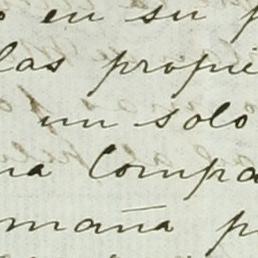 o en su p
las propie
un solo
na Compa
maña p